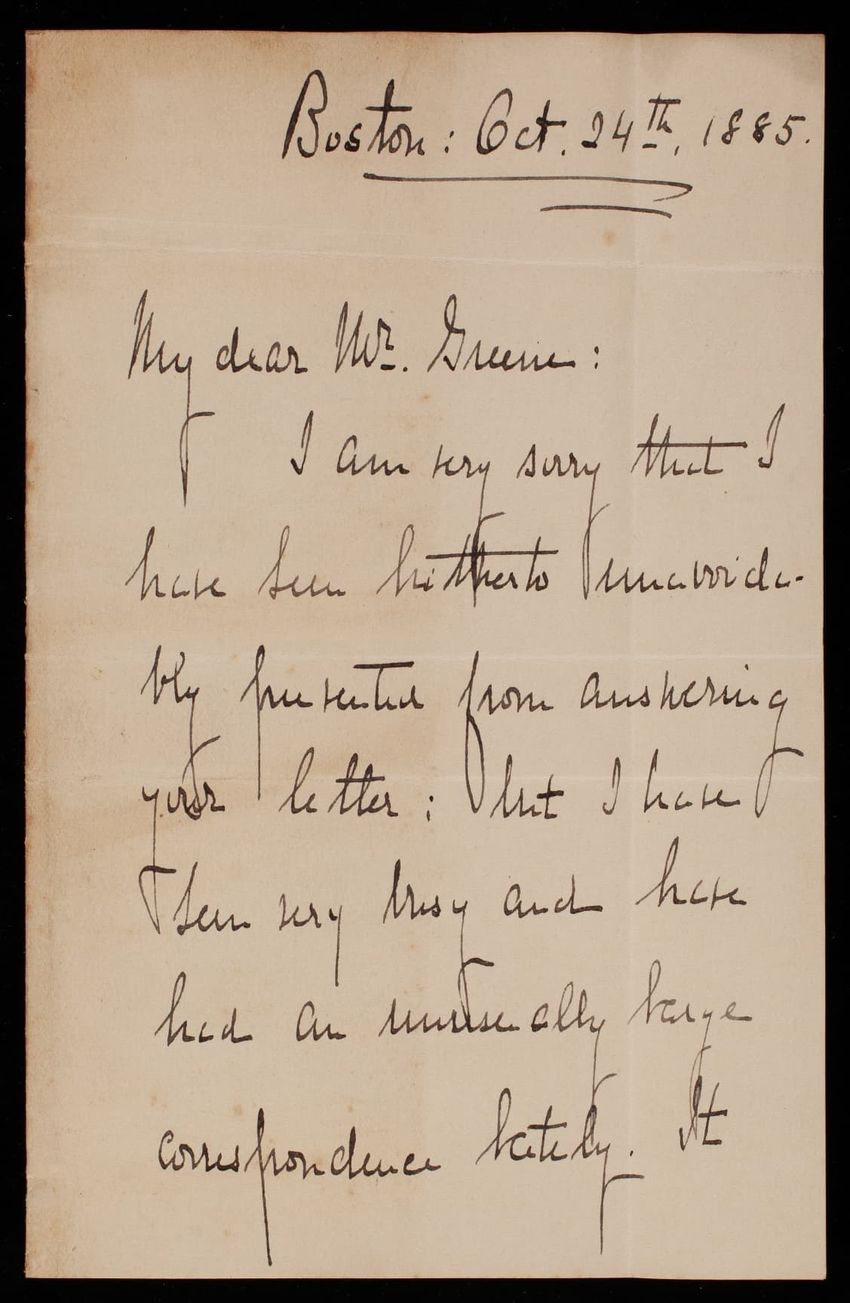 Boston: Oct. 24th, 1885.
My dear Mr. Greene:
I am very sorry that I
have been hitherto unavoida-
bly prevented from answering
your letter; but I have
been very busy and have
had an unusually large
correspondence lately. It